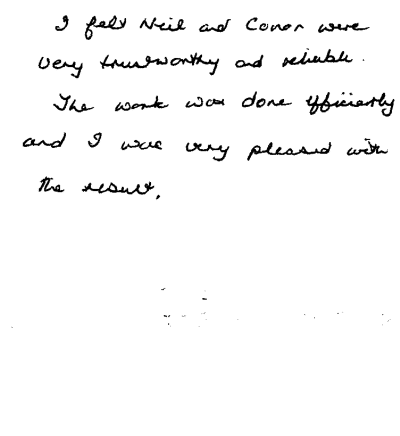 I felt Neil and Conor were
very trustworthy and reliable.
The work was done efficiently
and I was very pleased with
the result.